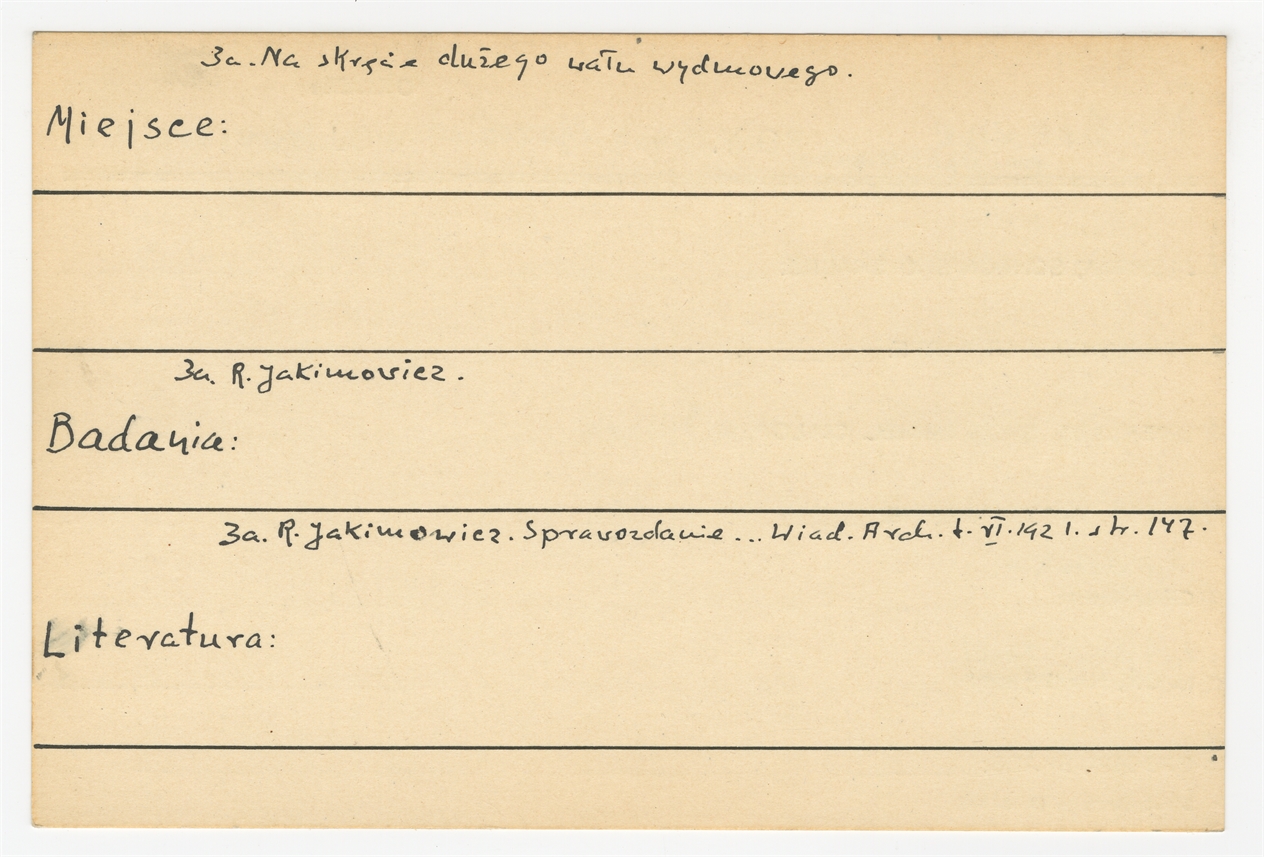 3a. Na skręcie dużego wału wydmowego.
Miejsce:
3a. R. Jakimowicz.
Badania:
3a. R. Jakimowicz. Sprawozdanie... Wiad. Arch. t. VI. 1921. str. 147.
Literatura: